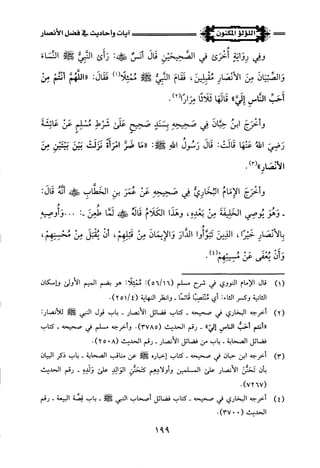 اللؤلؤ المكنون
آيات وأحاديث في فضل الأنصار
وفي رواية أخرى في الصحيحين قال أنس ﵁: رأى النبي ﷺ النساء
والصبيان من الأنصار مقبلين، فقام النبي ﷺ ممثلا(١) فقال: «اللهم أنتم من
أحب الناس إلي» قالها ثلاثا مرارا(٢).
وأخرج ابن حبان في صحيحه بسند صحيح على شرط مسلم عن عائشة
رضي الله عنها قالت: قال رسول الله ﷺ: «ما ضر امرأة نزلت بين بيتين من
الأنصار»(٣).
وأخرج الإمام البخاري في صحيحه عن عمر بن الخطاب ﵁ أنه قال:
- وهو يوصي الخليفة من بعده، وهذا الكلام قاله ﵁ لما طعن -: ... وأوصيه
بالأنصار خيرا، الذين تبوأوا الدار والإيمان من قبلهم، أن يقبل من محسنهم،
وأن يعفى عن مسيئهم(٤).
(١) قال الإمام النووي في شرح مسلم (٥٦/١٦): ممثلا: هو بضم الميم الأولى وإسكان
الثانية وكسر الثاء: أي منتصبا قائما - وانظر النهاية (٢٥١/٤).
(٢) أخرجه البخاري في صحيحه - كتاب فضائل الأنصار - باب قول النبي ﷺ للأنصار:
«أنتم أحب الناس إلي» - رقم الحديث (٣٧٨٥) - وأخرجه مسلم في صحيحه - كتاب
فضائل الصحابة - باب من فضائل الأنصار - رقم الحديث (٢٥٠٨).
(٣) أخرجه ابن حبان في صحيحه - كتاب إخباره ﷺ عن مناقب الصحابة - باب ذكر البيان
بأن تحنن الأنصار على المسلمين وأولادهم كتحنن الوالد على ولده - رقم الحديث
(٧٢٦٧).
(٤) أخرجه البخاري في صحيحه - كتاب فضائل أصحاب النبي ﷺ - باب قصة البيعة - رقم
الحديث (٣٧٠٠).
١٩٩